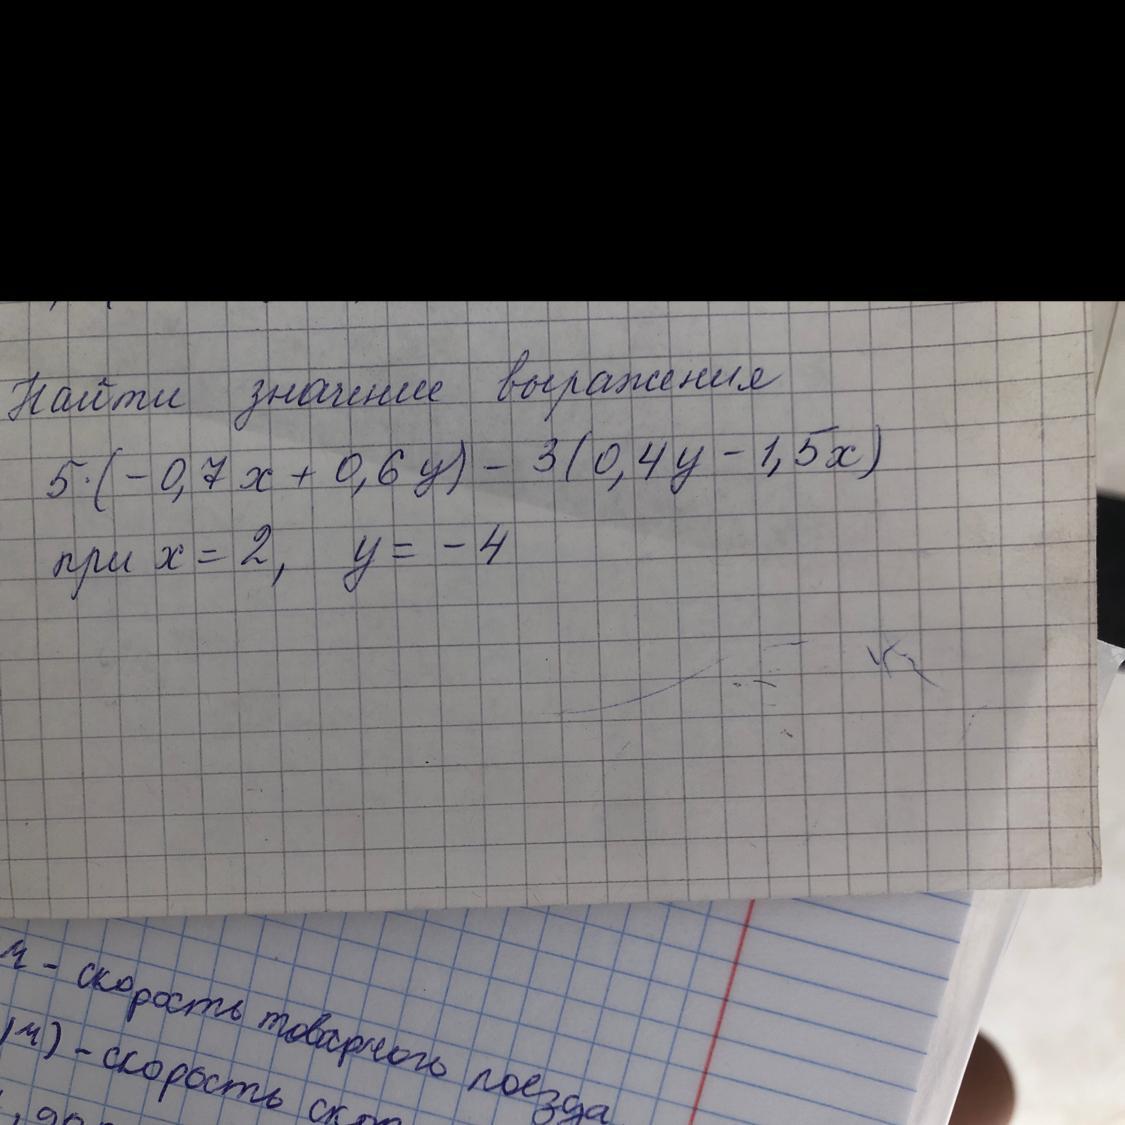 Найти значение выражения
5·(-0,7x + 0,6y) - 3(0,4y - 1,5x)
при x = 2, y = -4
- скорость товарного поезда
) - скорость